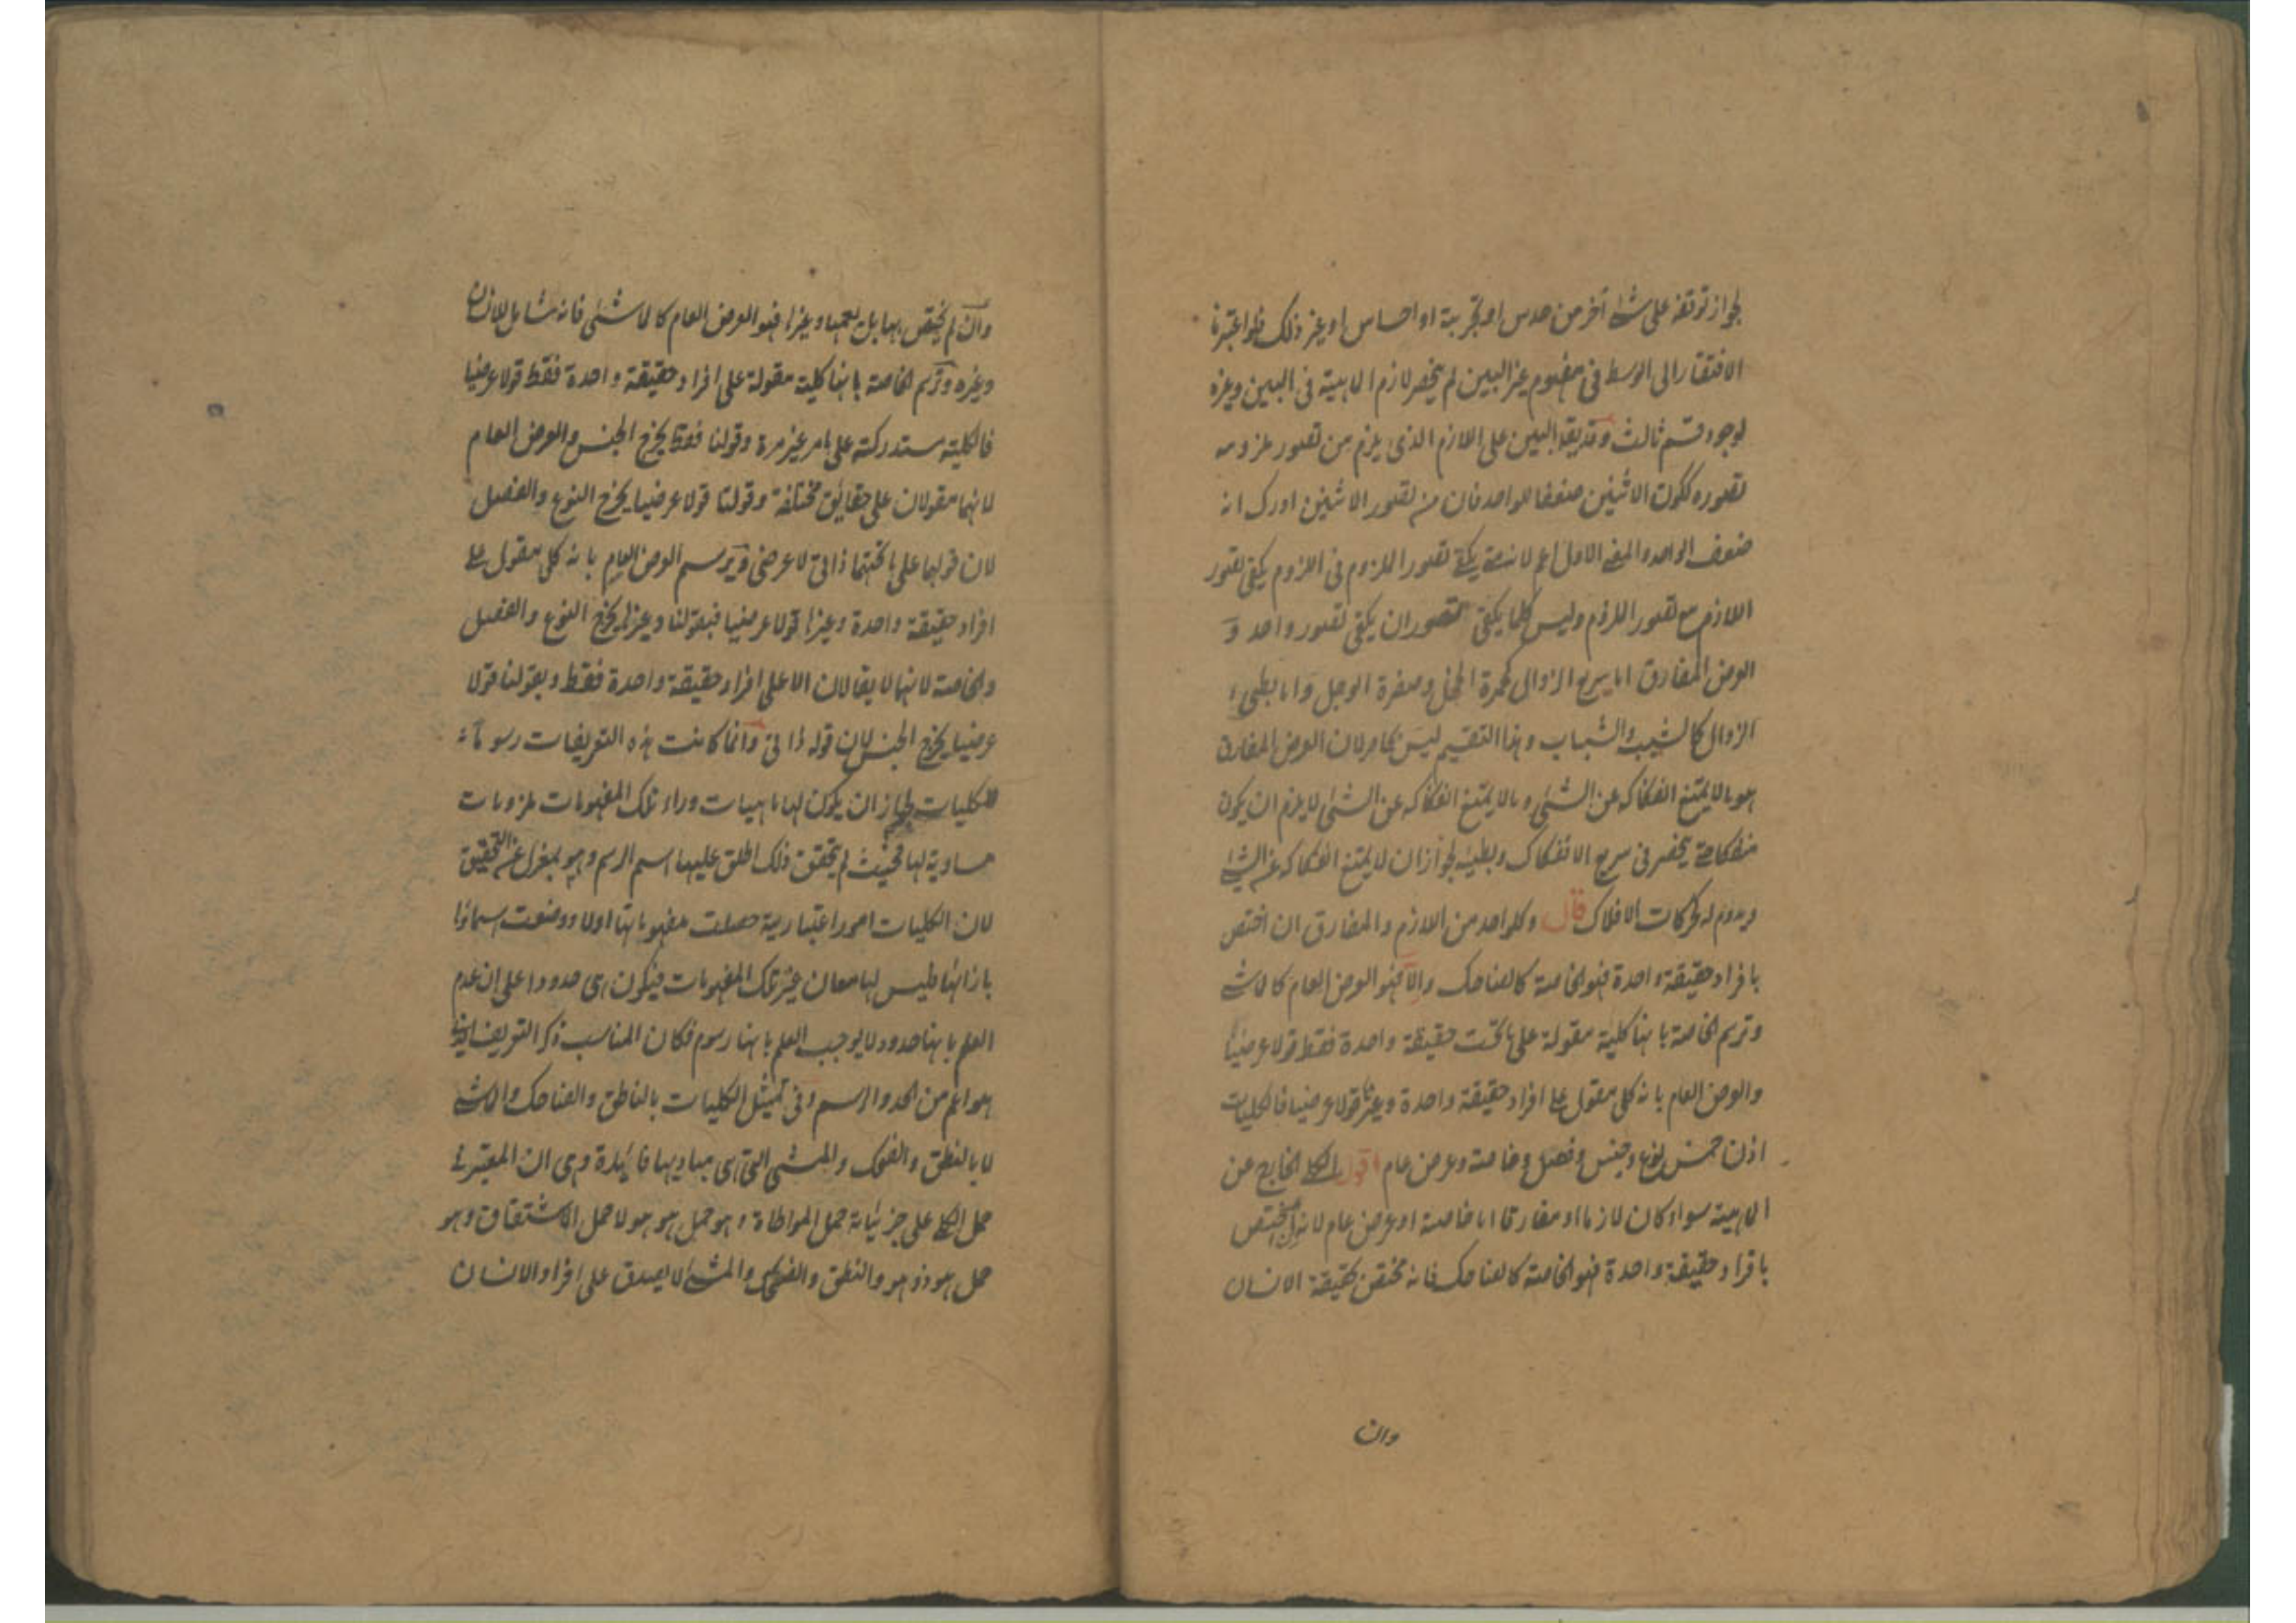 لجواز توقفه على شئ آخر من حدس او تجربة او احساس او غير ذلك فلو اعتبرنا
الافتقار الى الوسط فى مفهوم غير البين لم ينحصر لازم الماهية فى البين وغيره
لوجود قسم ثالث وقد يقال البين على اللازم الذى يلزم من تصور ملزومه
تصوره ككون الاثنين ضعفا للواحد فان من تصور الاثنين ادرك انه
ضعف الواحد والمعنى الاول اعم لانه متى يكفى تصور الملزوم فى اللزوم يكفى تصور
اللازم مع تصور الملزوم وليس كلما يكفى التصوران يكفى تصور واحد و
العرض المفارق اما سريع الزوال كحمرة الخجل وصفرة الوجل واما بطيء
الزوال كالشيب والشباب وهذا التقسيم ليس بحاصر لان العرض المفارق
هو ما لا يمتنع انفكاكه عن الشئ وما لا يمتنع انفكاكه عن الشئ لا يلزم ان يكون
منفكا حتى ينحصر فى سريع الانفكاك وبطيئه لجواز ان لا يمتنع انفكاكه عن الشئ
ويدوم له كحركات الافلاك قال وكل واحد من اللازم والمفارق ان اختص
بافراد حقيقة واحدة فهو الخاصة كالضاحك والا فهو العرض العام كالماشى
وترسم الخاصة بانها كلية مقولة على ما تحت حقيقة واحدة فقط قولا عرضيا
والعرض العام بانه كلى مقول على افراد حقيقة واحدة وغيرها قولا عرضيا فالكليات
اذن خمس نوع وجنس وفصل وخاصة وعرض عام اقول الكلى الخارج عن
الماهية سواء كان لازما او مفارقا اما خاصة او عرض عام لانه ان اختص
بافراد حقيقة واحدة فهو الخاصة كالضاحك فانه مختص بحقيقة الانسان
وان
وان لم يختص بها بل يعمها وغيرها فهو العرض العام كالماشى فانه شامل للانسان
وغيره وترسم الخاصة بانها كلية مقولة على افراد حقيقة واحدة فقط قولا عرضيا
فالكلية مستدركة على ما مر غير مرة وقولنا فقط يخرج الجنس والعرض العام
لانهما مقولان على حقايق مختلفة وقولنا قولا عرضيا يخرج النوع والفصل
لان قولهما على ما تحتهما ذاتى لا عرضى ويرسم العرض العام بانه كلى مقول على
افراد حقيقة واحدة وغيرها قولا عرضيا فبقولنا وغيرها يخرج النوع والفصل
والخاصة لانها لا يقالان الا على افراد حقيقة واحدة فقط وبقولنا قولا
عرضيا يخرج الجنس لان قوله ذاتى وانما كانت هذه التعريفات رسوما
للكليات لجواز ان يكون لها ماهيات وراء تلك المفهومات ملزومات
مساوية لها فحيث لم يتحقق ذلك اطلق عليها اسم الرسم وهو بمعزل عن التحقيق
لان الكليات امور اعتبارية حصلت مفهوماتها اولا ووضعت اسماؤها
بازائها فليس لها معان غير تلك المفهومات فيكون هى حدودا على ان عدم
العلم بانها حدود لا يوجب العلم بانها رسوم فكان المناسب ذكر التعريف الذى
هو اعم من الحد والرسم وفى تمثيل الكليات بالناطق والضاحك والماشى
لا بالنطق والضحك والمشى التى هى مباديها فائدة وهى ان المعتبر فى
حمل الكلى على جزئياته حمل المواطاة وهو حمل هو هو لا حمل الاشتقاق وهو
حمل هو ذو هو والنطق والضحك والمشى لا يصدق على افراد الانسان